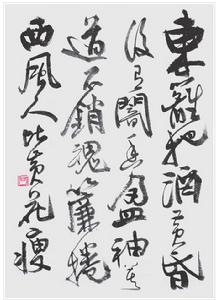 東籬把酒黃昏
後有闇香盈袖莫
道不銷魂簾捲
西風人比黃花瘦